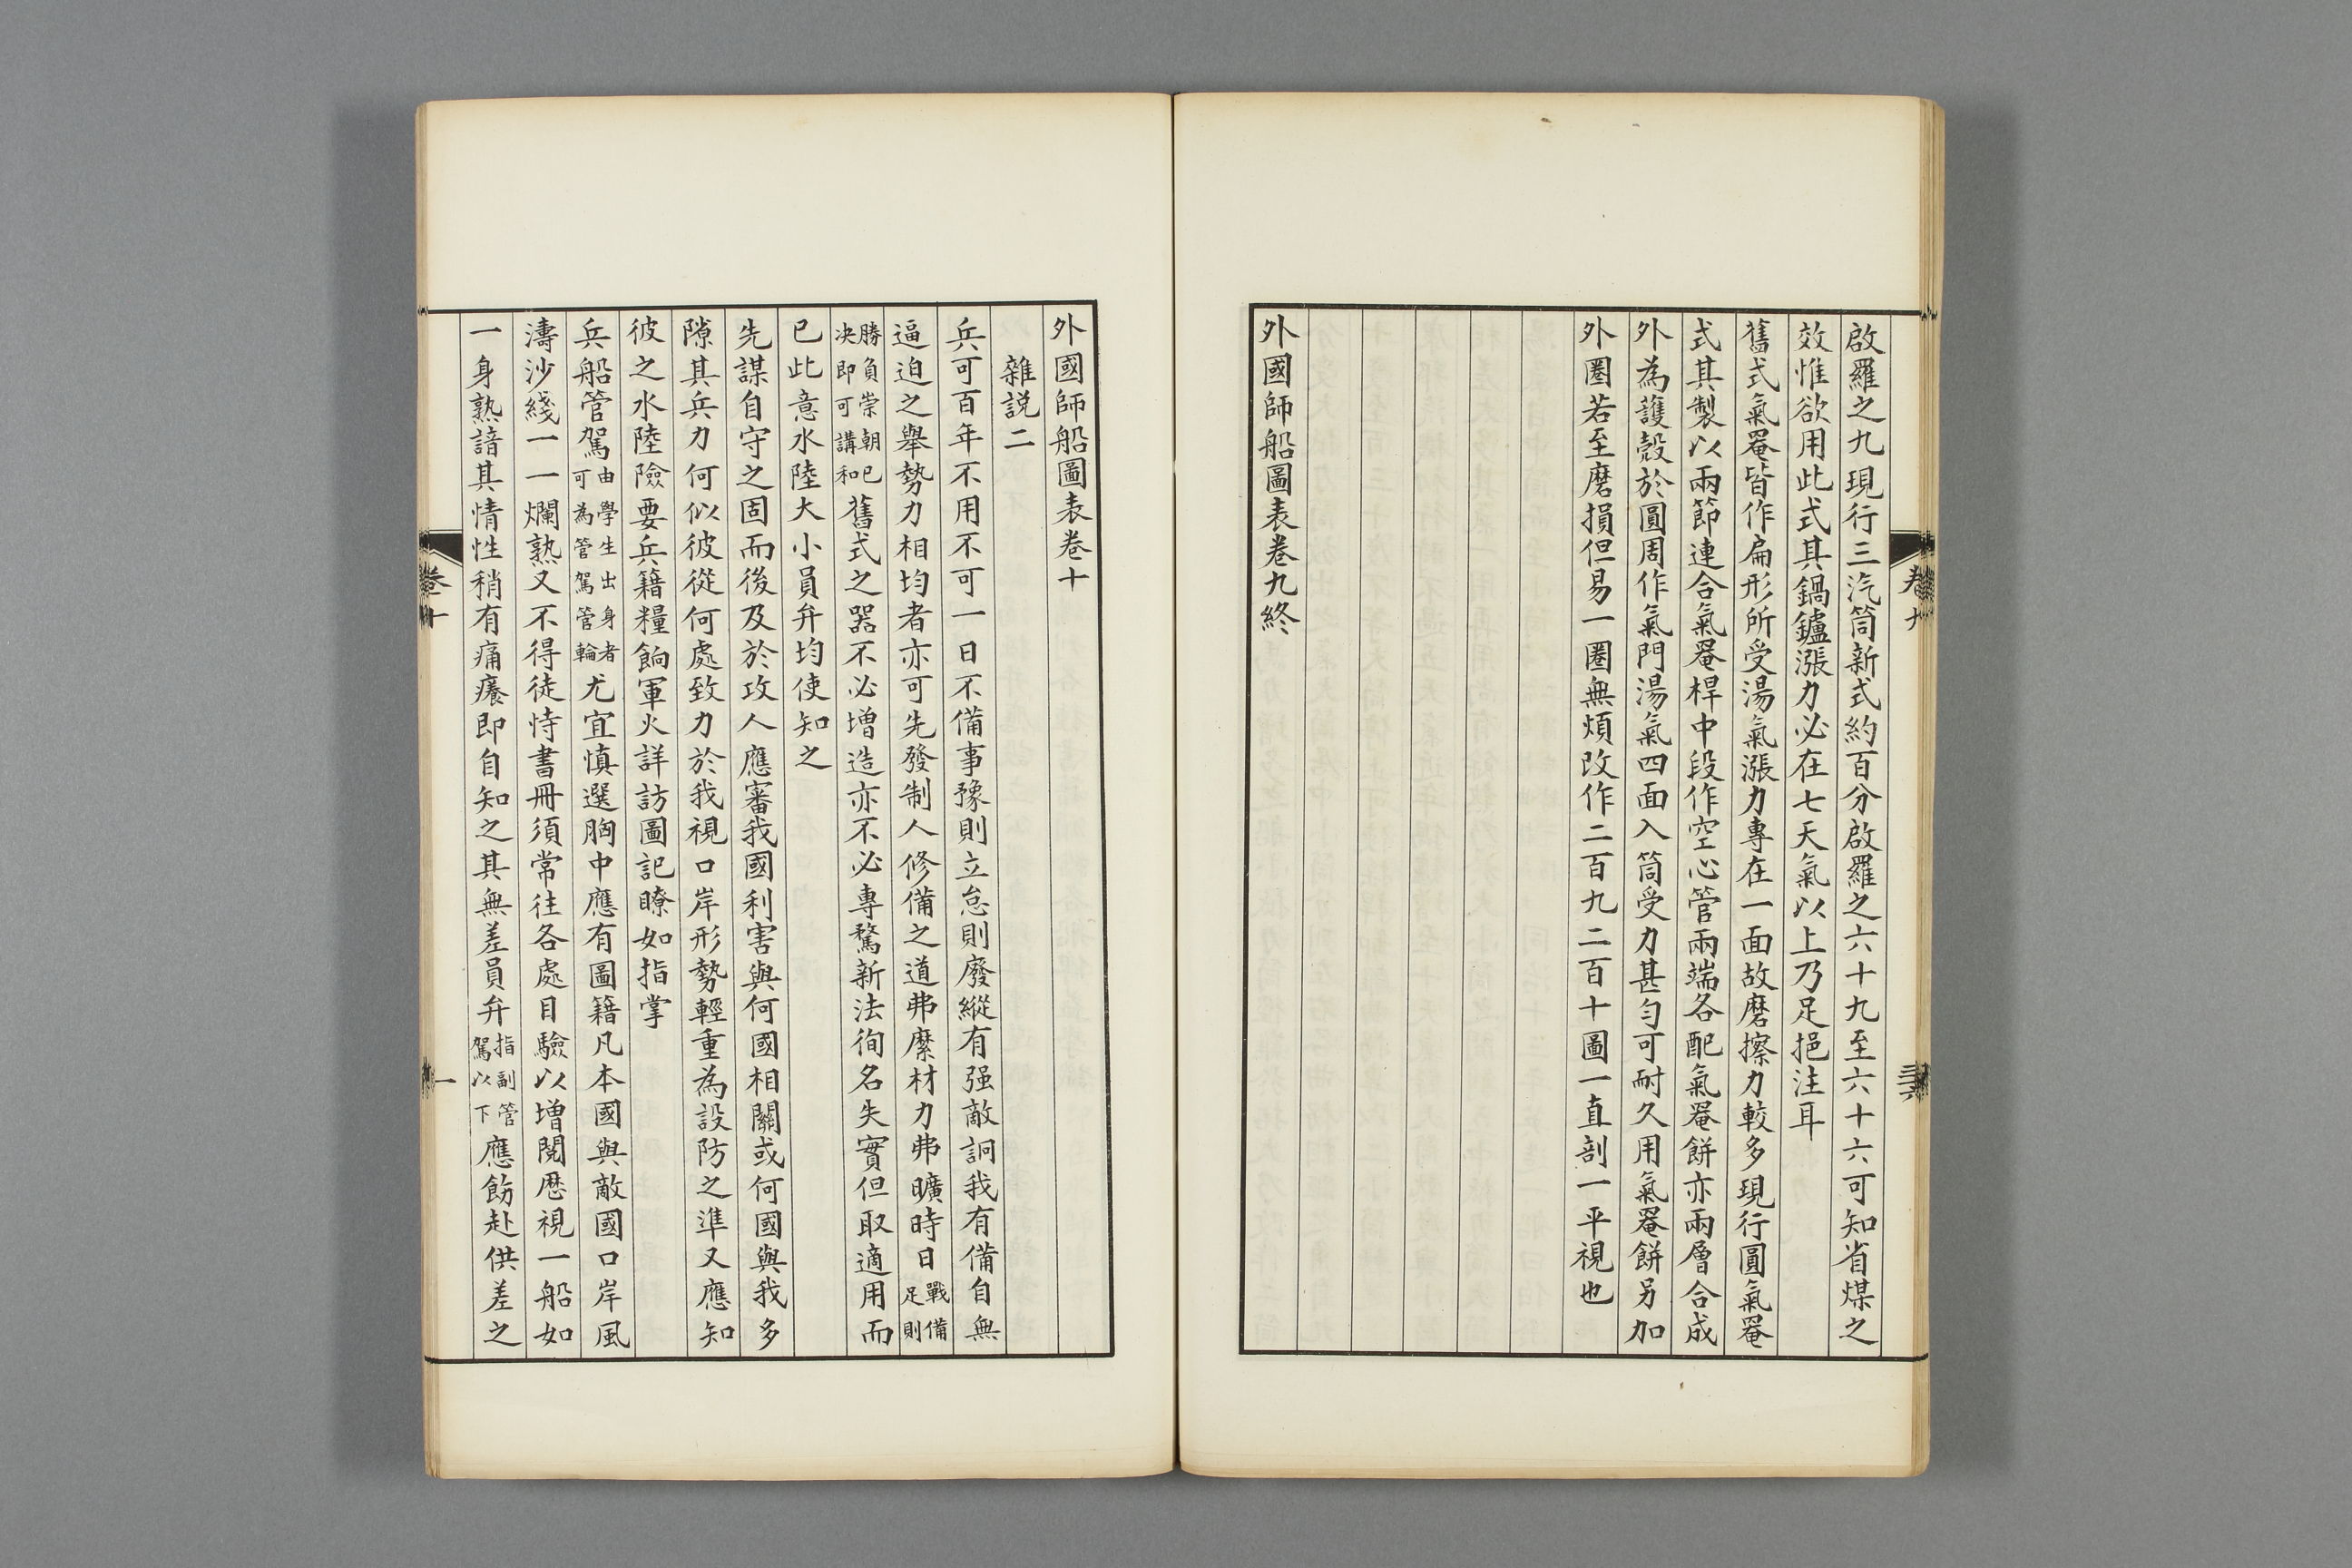 啟羅之九現行三汽筒新式約百分啟羅之六十九至六十六可知省煤之
效惟欲用此式其鍋鑪漲力必在七天氣以上乃足挹注耳
舊式氣罨皆作扁形所受湯氣漲力專在一面故磨擦力較多現行圓氣罨
式其製以兩節連合氣罨桿中段作空心管兩端各配氣罨餅亦兩層合成
外為護殼於圓周作氣門湯氣四面入筒受力甚勻可耐久用氣罨餅另加
外圈若至磨損但易一圈無煩改作二百九二百十圖一直剖一平視也
外國師船圖表卷九終
卷九
外國師船圖表卷十
雜説二
兵可百年不用不可一日不備事豫則立怠則廢縱有强敵詗我有備自無
逼迫之舉勢力相均者亦可先發制人修備之道弗縻材力弗曠時日戰備足則
勝負崇朝已决即可講和舊式之器不必增造亦不必專騖新法徇名失實但取適用而
已此意水陸大小員弁均使知之
先謀自守之固而後及於攻人應審我國利害與何國相關或何國與我多
隙其兵力何似彼從何處致力於我視口岸形勢輕重為設防之準又應知
彼之水陸險要兵籍糧餉軍火詳訪圖記瞭如指掌
兵船管駕由學生出身者可為管駕管輪尤宜慎選胸中應有圖籍凡本國與敵國口岸風
濤沙綫一一爛熟又不得徒恃書冊須常往各處目驗以增閱歷視一船如
一身熟諳其情性稍有痛癢即自知之其無差員弁指副管駕以下應飭赴供差之
卷十
一